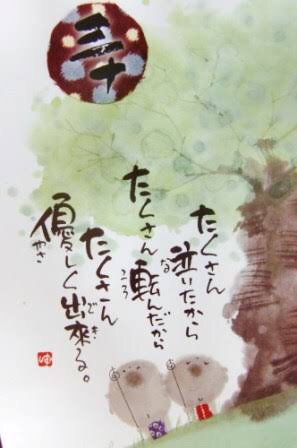 三十
たくさん
泣いたから
たくさん
転んだから
たくさん
優しく出来る。
な
ころ
やさ
でき